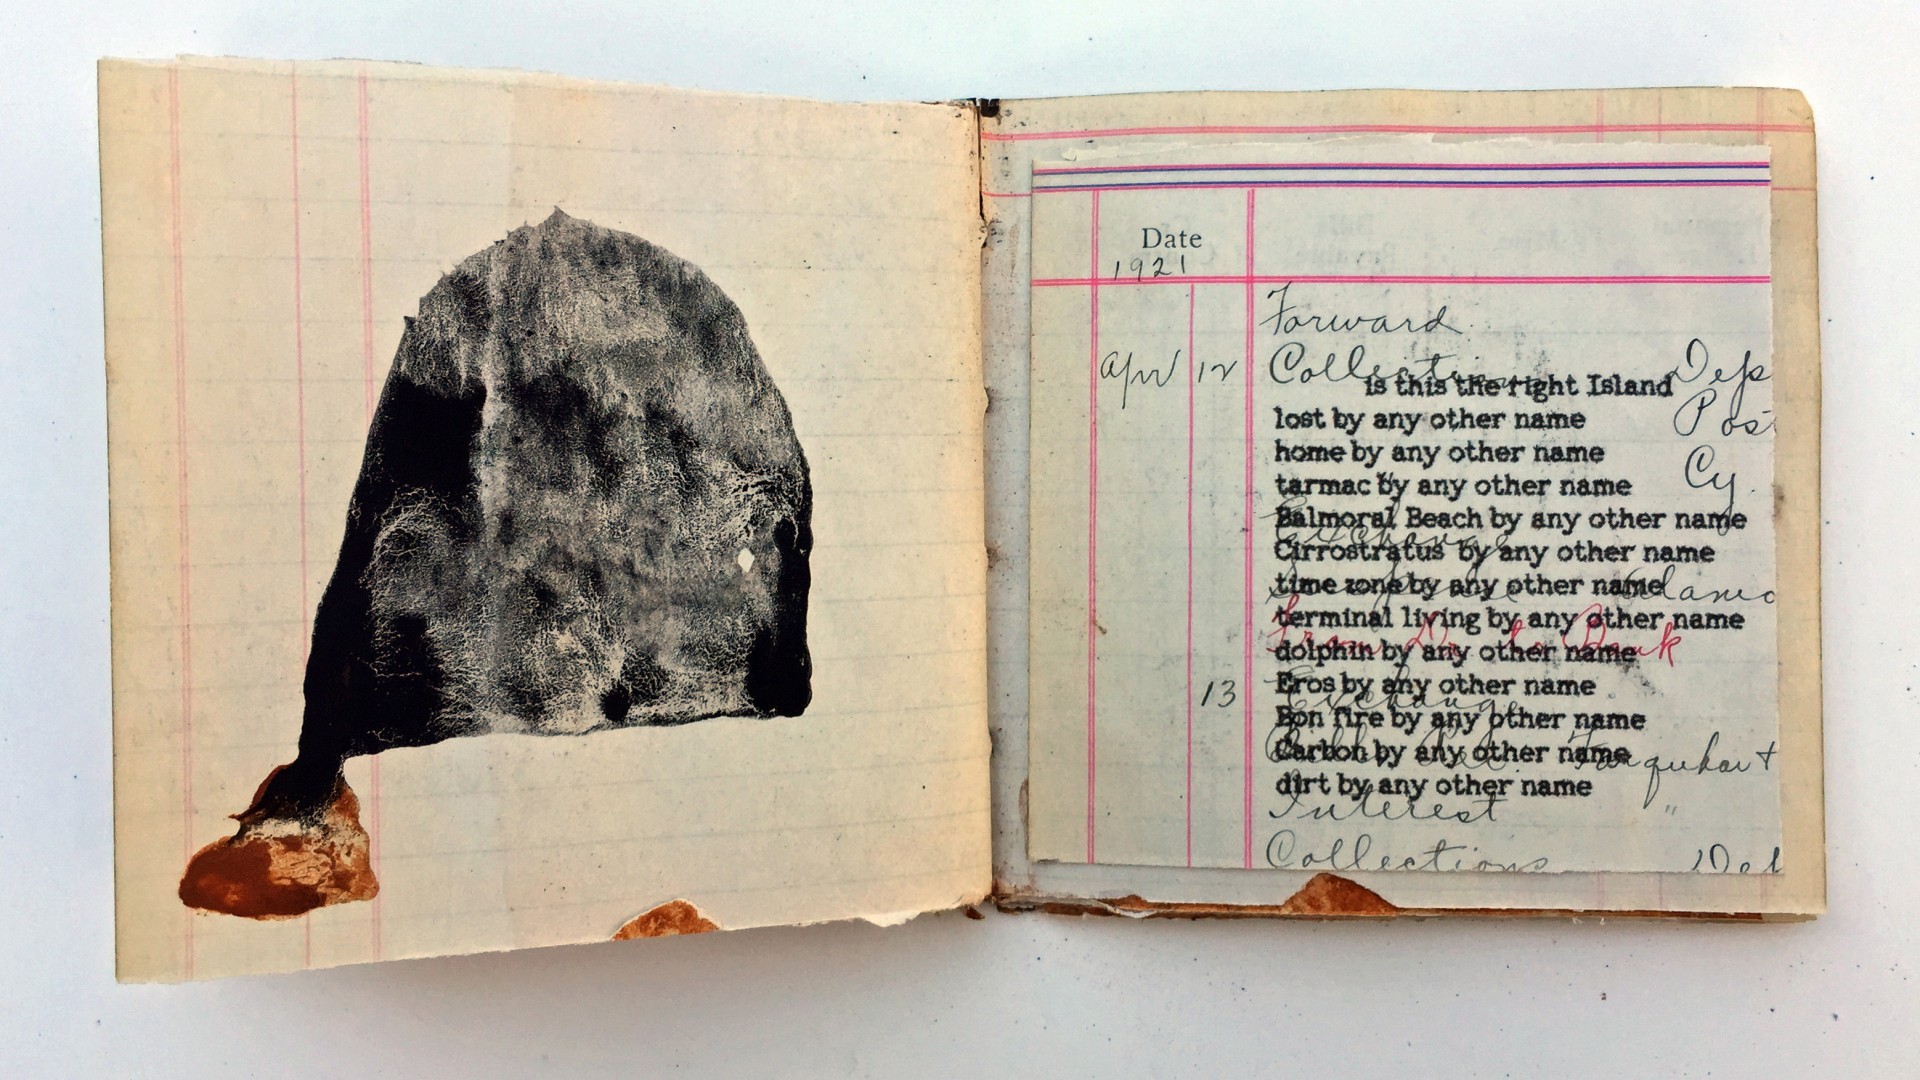 Date
1921
Forward
Apr 12 Collections Dep
is this the right Island
Pos
lost by any other name
home by any other name
Cy.
tarmac by any other name
Balmoral Beach by any other name
Exchange
Cirrostratus by any other name
time zone by any other name
terminal living by any other name
to Bank
dolphin by any other name
13 Exchange
Eros by any other name
Bon fire by any other name
Carbon by any other name
Farquhart
dirt by any other name
Interest "
Collections Def